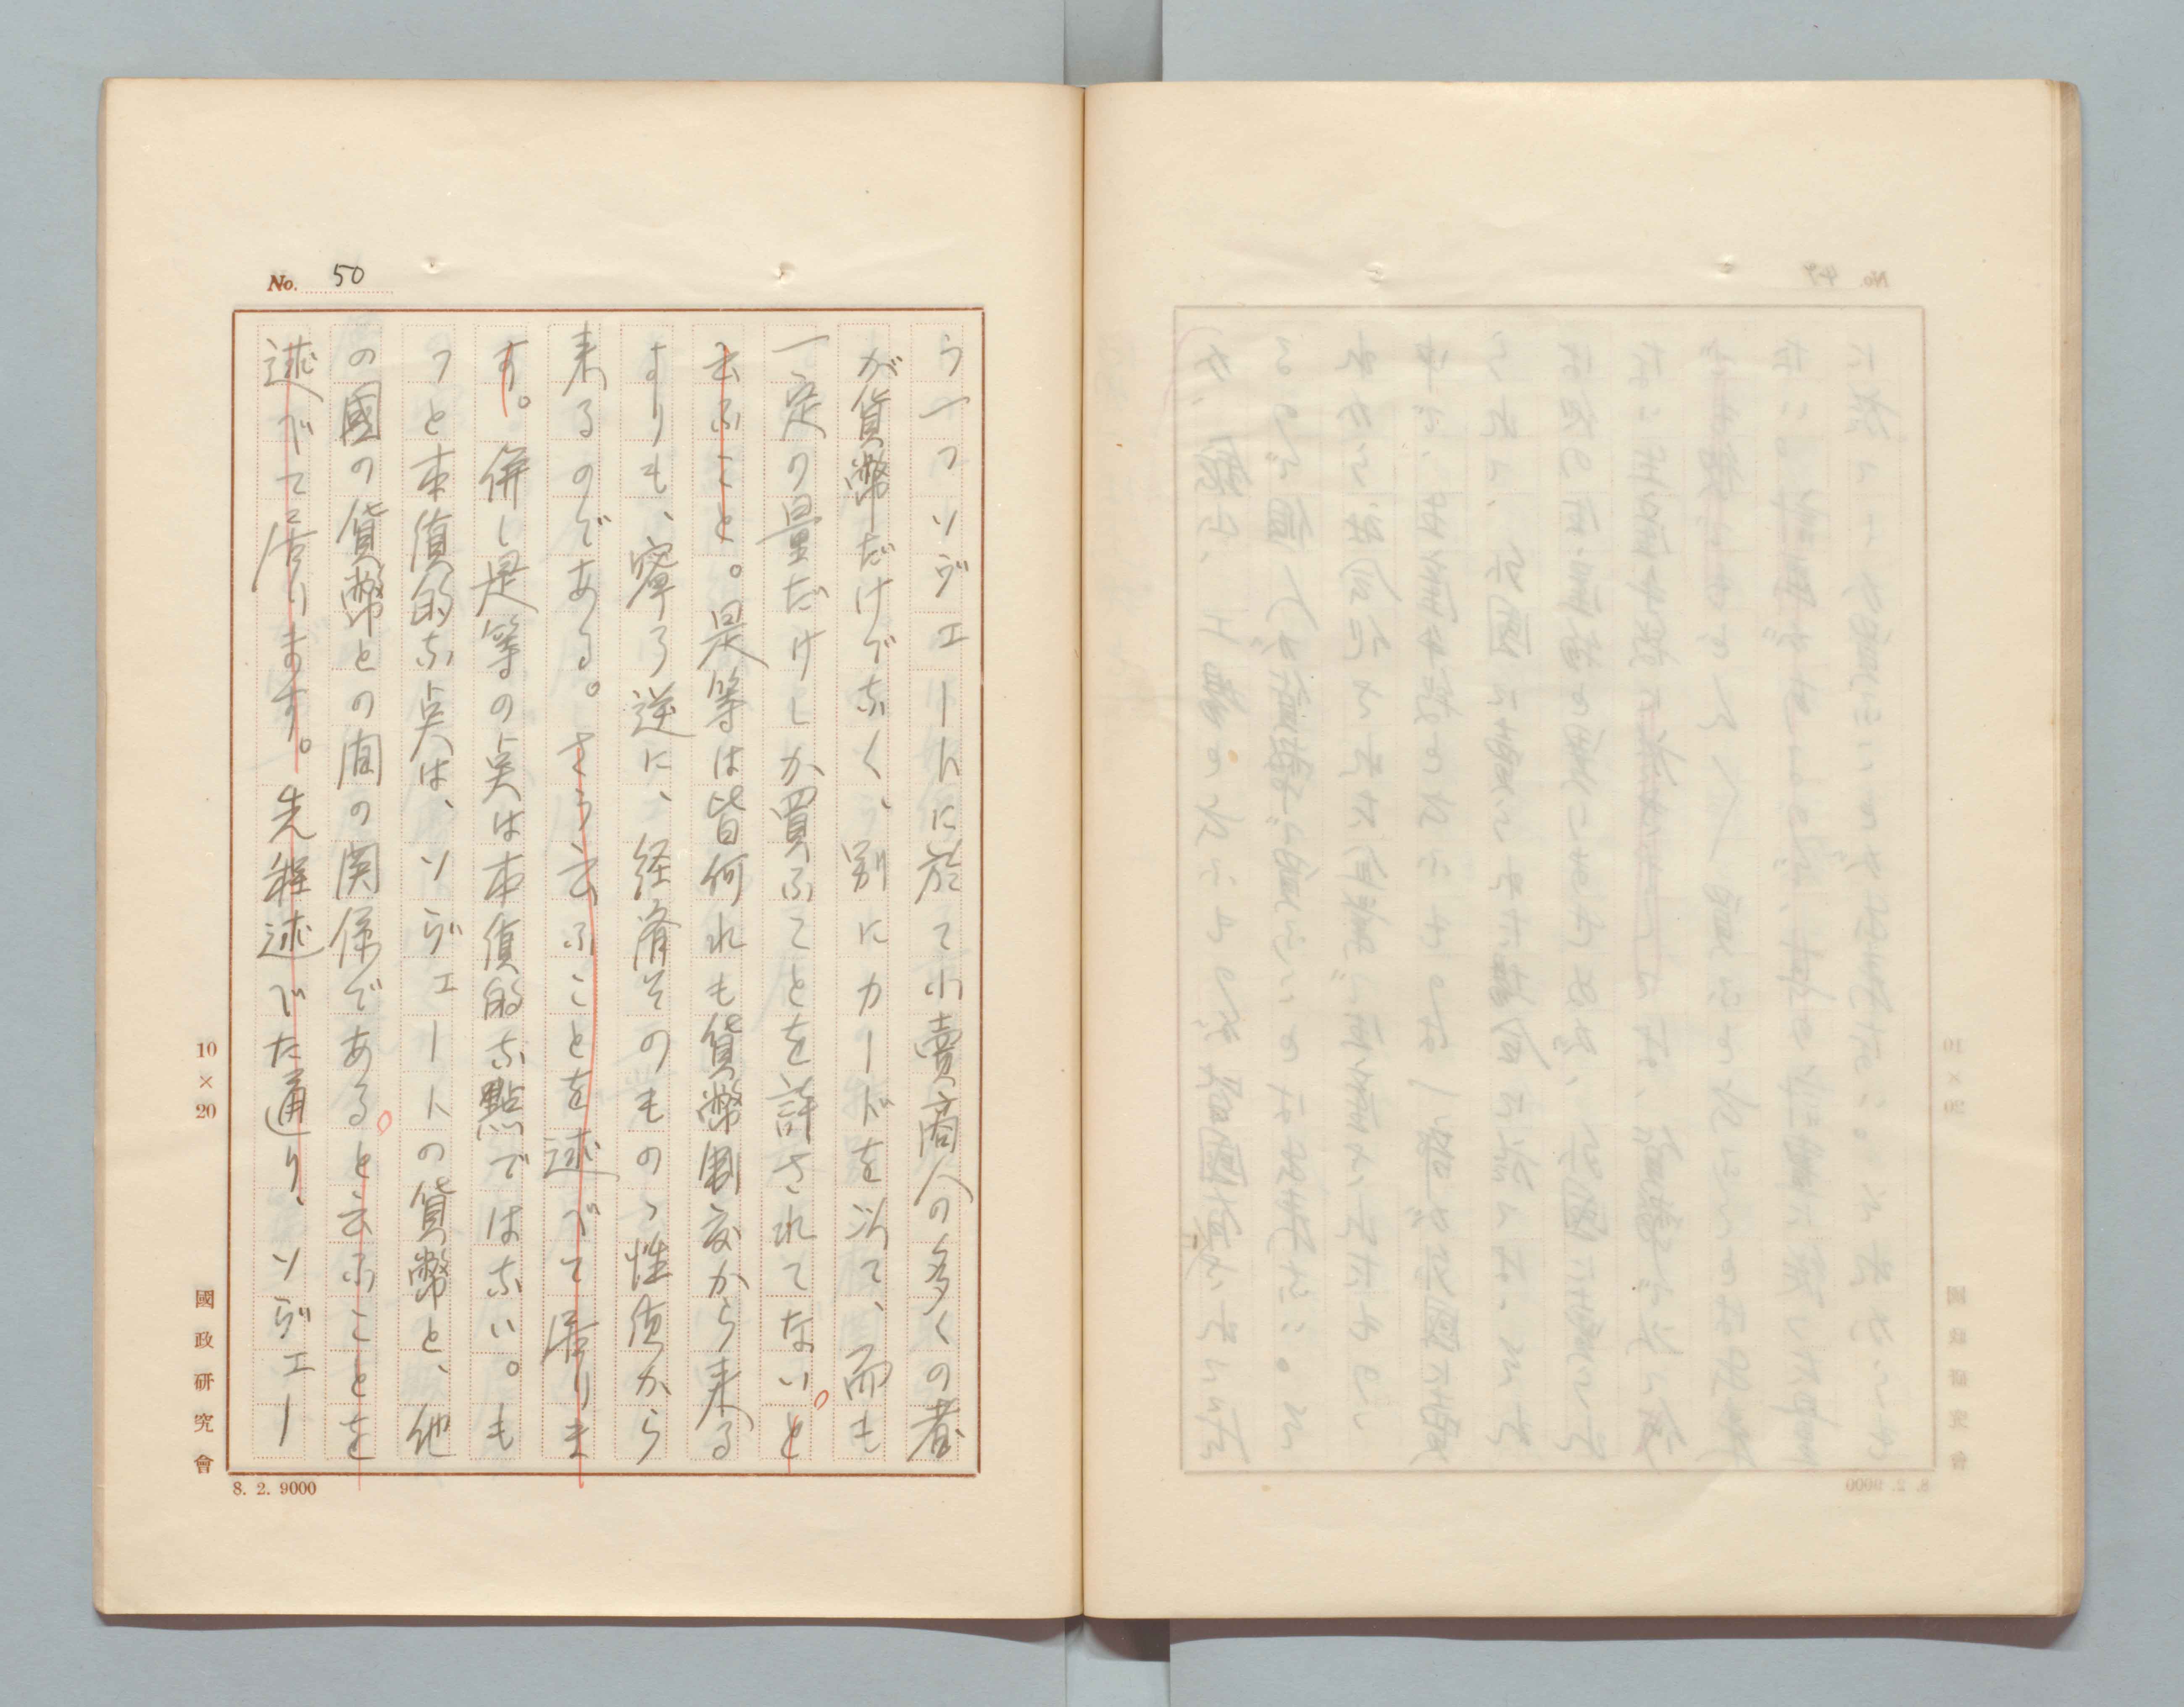 No. 50
う一つソヴエートに於て小賣商人の多くの者
が貨幣だけでなく、別にカードを以て、而も
一定の量だけしか買ふことを許されてない。と
云ふこと。是等は皆何れも貨幣制度から来る
よりも、寧ろ逆に、経済そのものゝ性質から
来るのである。さう云ふことを述べて居りま
す。併し是等の点は本質的な點ではない。も
つと本質的な点は、ソヴエートの貨幣と、他
の國の貨幣との間の関係である。と云ふことを
述べて居ります。先程述でた通り、ソヴエー
10×20
國政研究會
8. 2. 9000